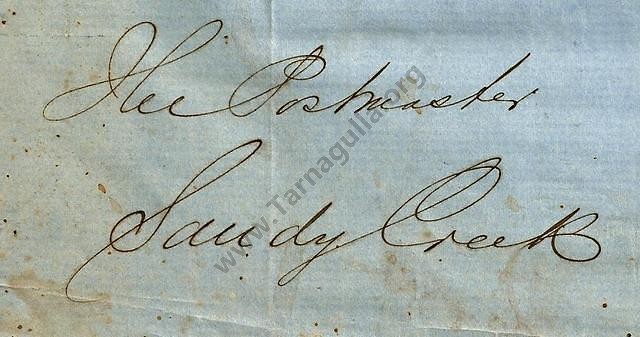 The Postmaster
Sandy Creek
www.Tarnagulla.org